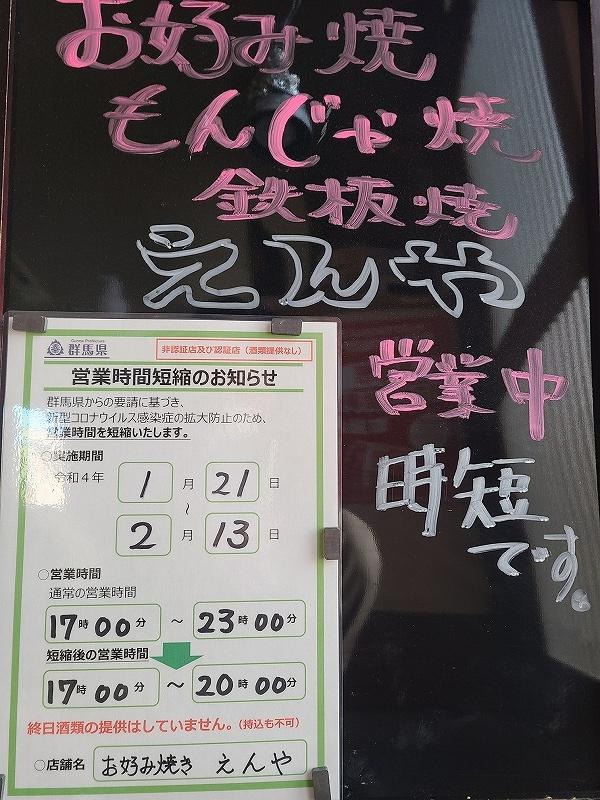 お好み焼
もんじゃ焼
鉄板焼
えんや
営業中
時短
です。
Gunma Prefecture
群馬県
非認証店及び認証店（酒類提供なし）
営業時間短縮のお知らせ
群馬県からの要請に基づき、
新型コロナウイルス感染症の拡大防止のため、
営業時間を短縮いたします。
○実施期間
令和４年 1 月 21 日
～
2 月 13 日
○営業時間
通常の営業時間
17時00分 ～ 23時00分
短縮後の営業時間
17時00分 ～ 20時00分
終日酒類の提供はしていません。（持込も不可）
○店舗名 お好み焼き えんや